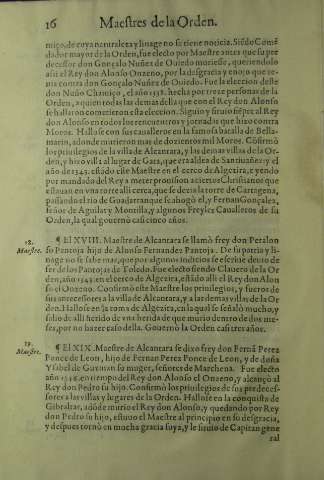 16 Maestres de la Orden.
miço, de cuya naturaleza y linage no se tiene noticia. Siẽdo Comẽ
dador mayor de la Orden, fue electo por Maestre antes que su pre
decessor don Gonçalo Nuñez de Ouiedo muriesse, queriendolo
assi el Rey don Alonso Onzeno, por la desgracia y enojo que te-
nia contra don Gonçalo Nuñez de Ouiedo. Fue la eleccion deste
don Nuño Chamiço, el año 1338. hecha por treze personas de la
Orden, a quien todas las demas della que con el Rey don Alonso
se hallaron cometieron esta eleccion. Siguio y siruio siẽpre al Rey
don Alonso en todos los rencuentros y jornadas que hizo contra
Moros. Hallose con sus caualleros en la famosa batalla de Bella-
marin, adonde murieron mas de dozientos mil Moros. Cõfirmò
los priuilegios de la villa de Alcantara, y las demas villas de la Or-
den, y hizo villa al lugar de Gata, que era aldea de Santiuañez: y el
año de 1343. estãdo este Maestre en el cerco de Algezira, e yendo
por mandado del Rey a meter prouision a ciertos Christianos que
estauan en vna torre alli cerca, que se dezia la torre de Cartagena,
passando el rio de Guadarranque se ahogò el, y Fernan Gonçalez,
señor de Aguilar y Montilla, y algunos Freyles Caualleros de su
Orden, la qual gouernò casi cinco años.
18. Maestre.
¶ El XVIII. Maestre de Alcantara se llamò frey don Peralon
so Pantoja hijo de Alonso Fernandez Pantoja. De su patria y li-
nage no se sabe mas, que por algunos indicios se escriue deuio de
ser de los Pantojas de Toledo. Fue electo siendo Clauero de la Or
dẽ, año 1343. en el cerco de Algezira, estãdo alli el Rey don Alon
so el Onzeno. Confirmò este Maestre los priuilegios, y fueros de
sus antecessores a la villa de Alcantara, y a las demas villas de la Or
den. Hallose en la toma de Algezira, en la qual se señalò mucho, y
salio de alli herido de vna herida de que murio dentro de dos me-
ses, por no hazer caso della. Gouernò la Orden casi tres años.
19. Maestre.
¶ El XIX. Maestre de Alcantara se dixo frey don Fernã Perez
Ponce de Leon, hijo de Fernan Perez Ponce de Leon, y de doña
Ysabel de Guzman su muger, señores de Marchena. Fue electo
año 1346. en tiempo del Rey don Alonso el Onzeno, y alcançò al
Rey don Pedro su hijo. Confirmò los priuilegios de sus predeces-
sores a las villas y lugares de la Orden. Hallose en la conquista de
Gibraltar, adõde murio el Rey don Alonso, y quedando por Rey
don Pedro su hijo, estuuo el Maestre al principio en su desgracia,
y despues tornò en mucha gracia suya, y le siruio de Capitan gene
ral